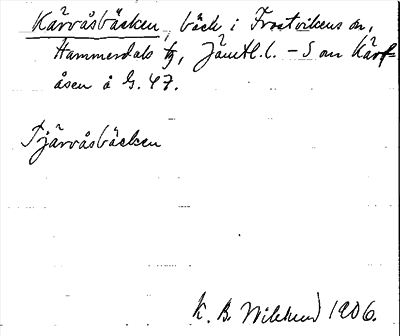 Kärvåsbäcken, bäck i Frostvikens sn,
Hammerdals tg, Jämtl. l. – S om Kärf-
åsen å G. 47.
Tjärvåsbäcken
K. B. Wiklund 1906.